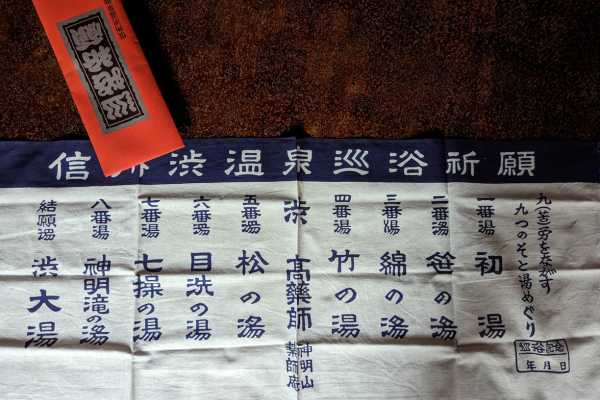 信州渋温泉巡浴祈願
九(苦)労を流す
九つのそと湯めぐり
巡浴記念
年月日
一番湯 初湯
二番湯 笹の湯
三番湯 綿の湯
四番湯 竹の湯
渋 高薬師 神明山 薬師庵
五番湯 松の湯
六番湯 目洗の湯
七番湯 七操の湯
八番湯 神明滝の湯
結願湯 渋大湯